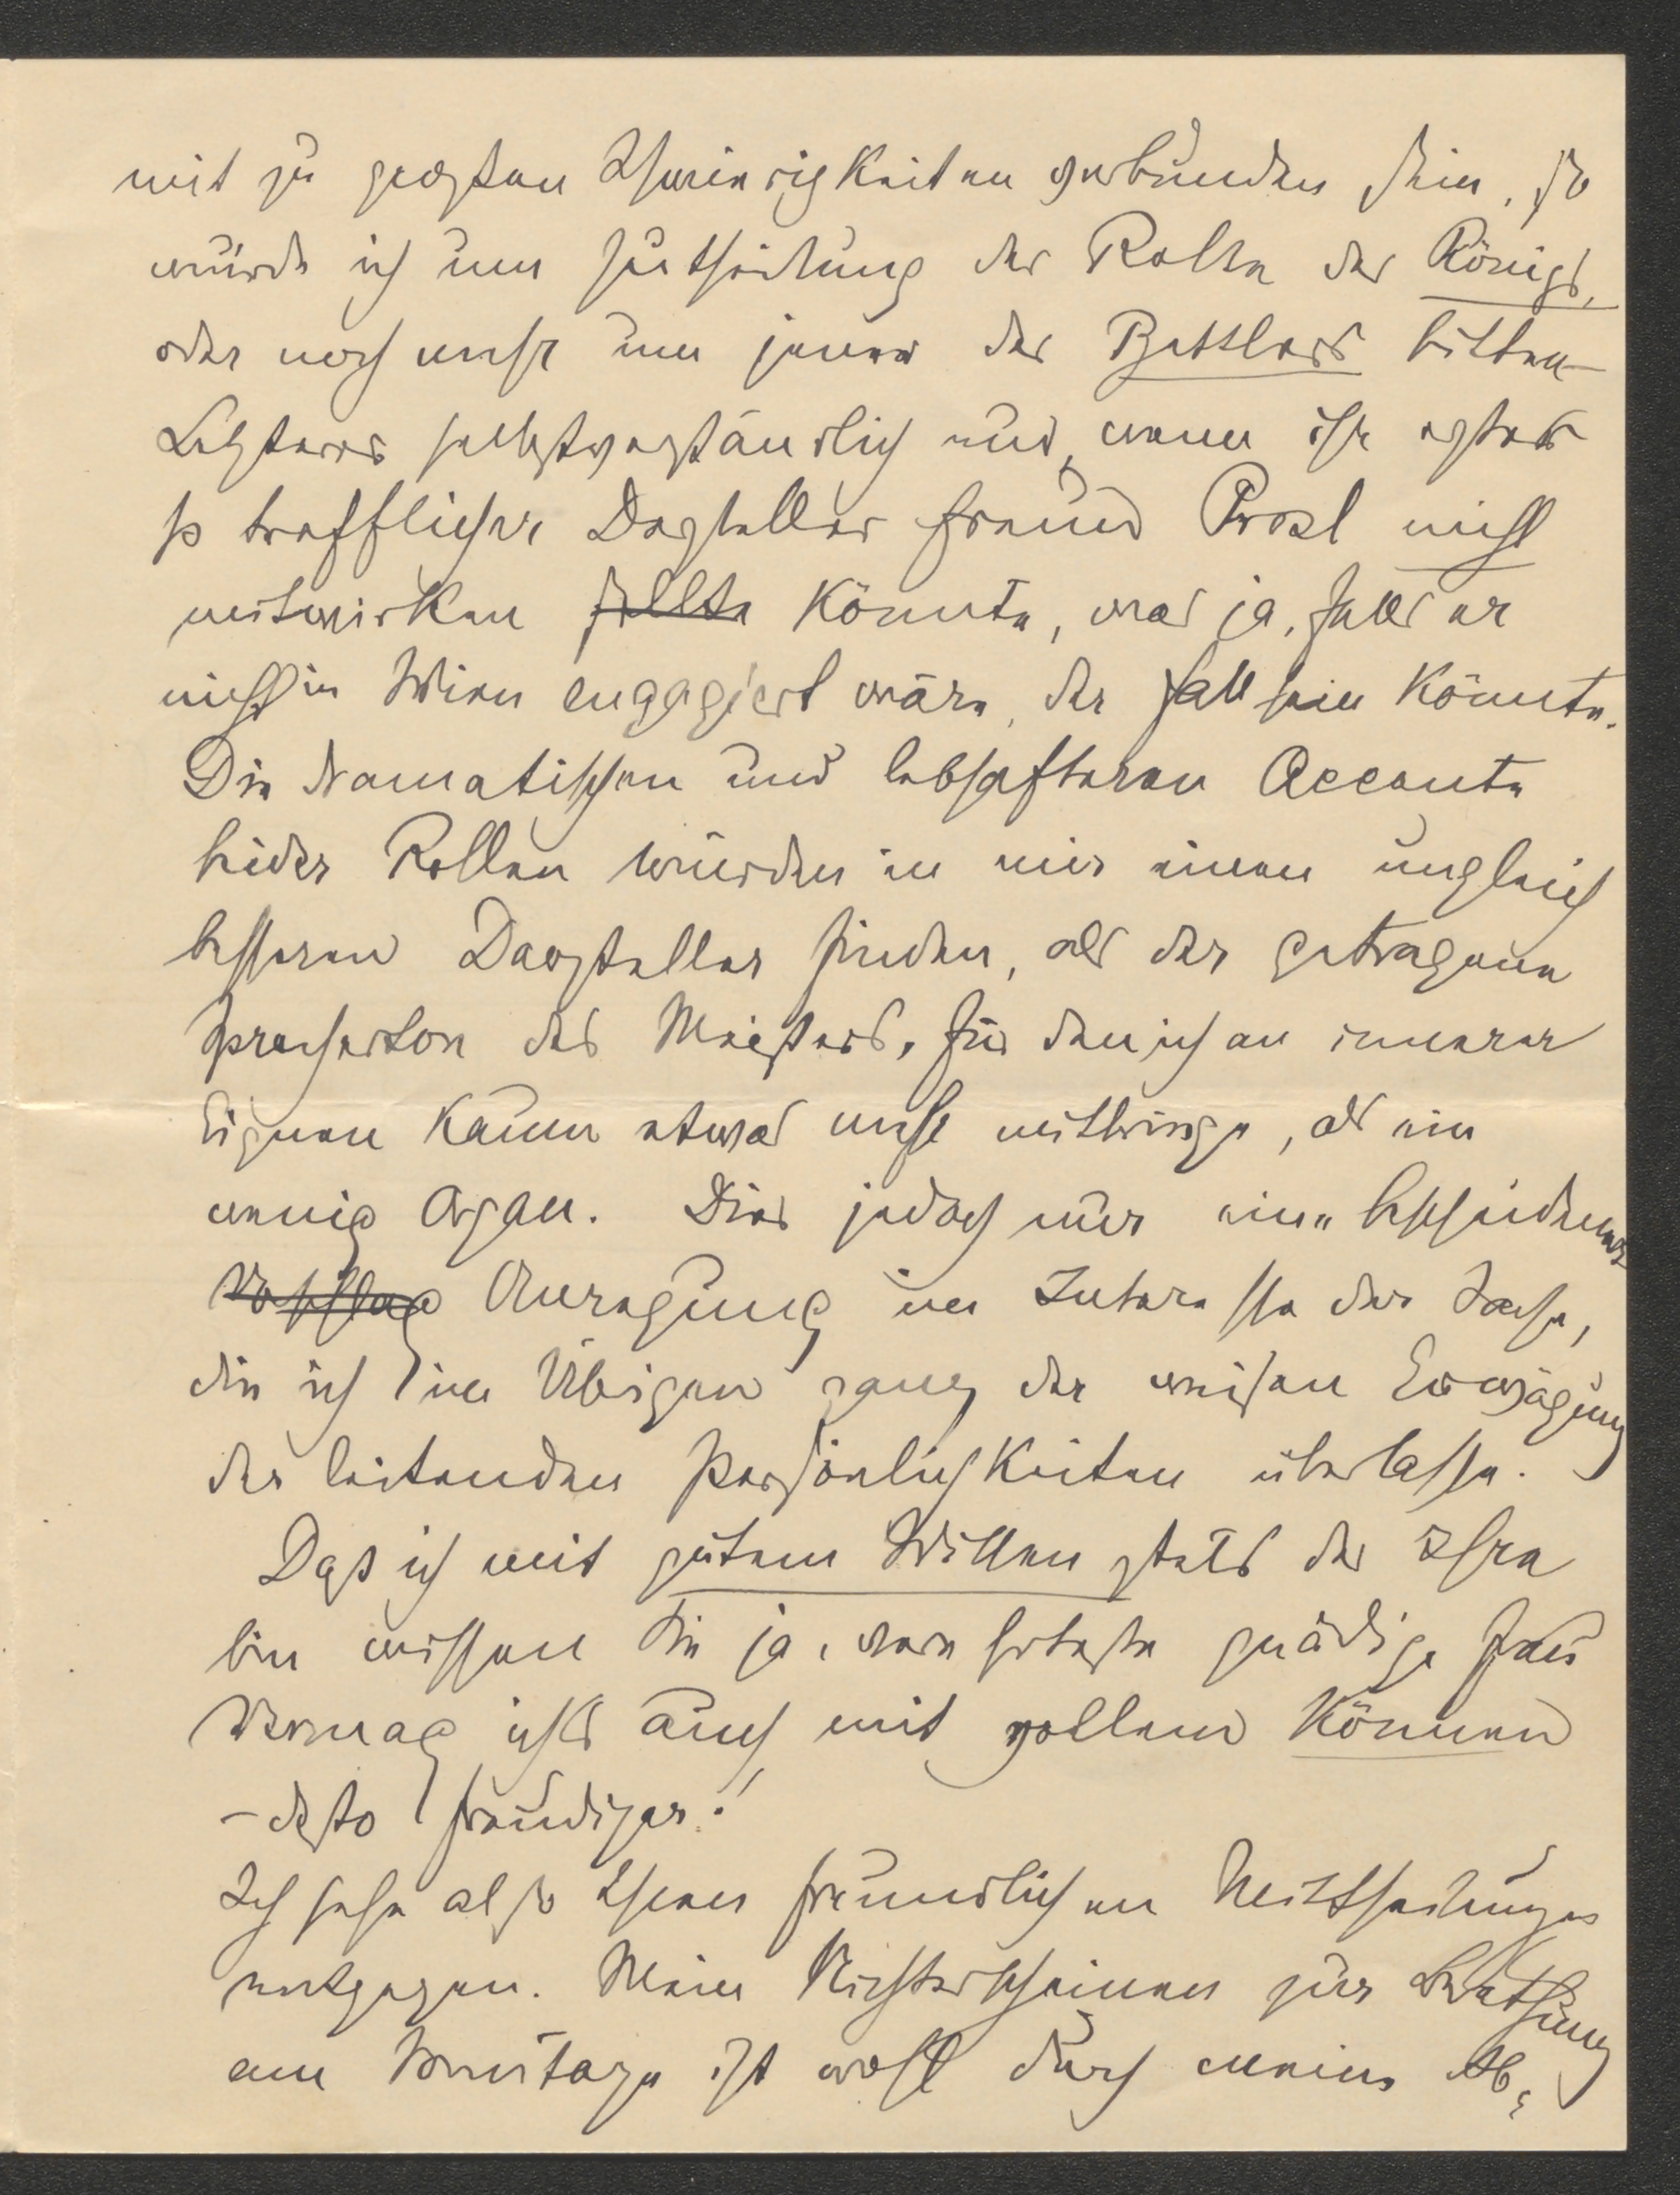 mit zu großen Schwierigkeiten verbunden sein, so
würde ich um Zutheilung der Rolle des Königs,
oder noch mehr um jener des Bettlers bitten
Letzteres selbstverständlich nur, wenn ihr erster
so trefflicher Darsteller Freund Prosl nicht
mitwirken sollte könnte, was ja, falls er
nicht in Wien engagiert wäre, der Fall sein könnte.
Die dramatischen und lebhafteren Accente
beider Rollen würden in mir einen ungleich
besseren Darsteller finden, als der getragene
Predigerton des Meisters, für den ich an innerer
Eignung kaum etwas mehr mitbringe, als ein
wenig Organ. Dies jedoch nur eine bescheidene
Vorschlag Anregung im Interesse der Sache,
die ich im Übrigen ganz der weisen Erwägung
der leitenden Persönlichkeiten überlasse.
Daß ich mit gutem Willen stets der Ihre
bin wissen Sie ja, verehrteste gnädige Frau
Vermag ich's auch mit vollem Können
– desto freudiger!
Ich sehe also Ihren freundlichen Mittheilungen
entgegen. Mein Nichterscheinen zur Berathung
am Sonntage ist wohl durch meine Ab-